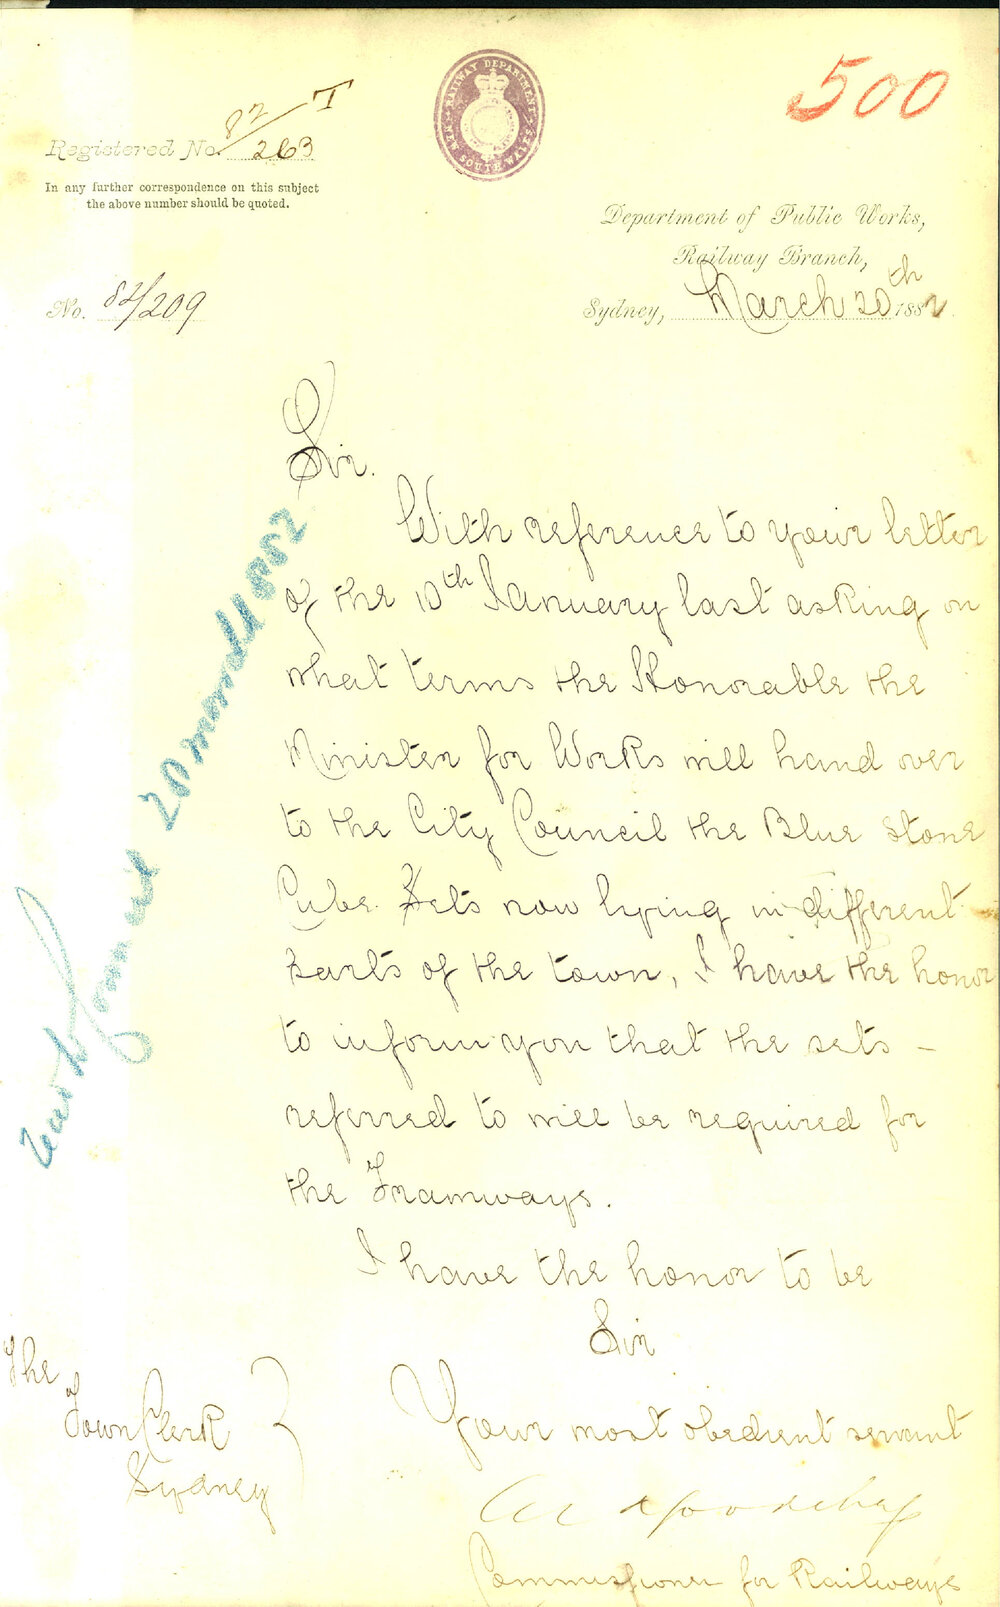 500
RAILWAY DEPARTMENT
NEW SOUTH WALES
82/263 T
Registered No.
In any further correspondence on this subject
the above number should be quoted.
Department of Public Works,
Railway Branch,
Sydney, March 20th 1882
No. 82/209
Sir.
With reference to your letter
of the 10th January last asking on
what terms the Honorable the
Minister for Works will hand over
to the City Council the Blue Stone
Cube Sets now lying in different
parts of the town, I have the honor
to inform you that the sets –
referred to will be required for
the Tramways.
I have the honor to be
Sir
Your most obedient servant
Commissioner for Railways
The
Town Clerk
Sydney
20 March 1882